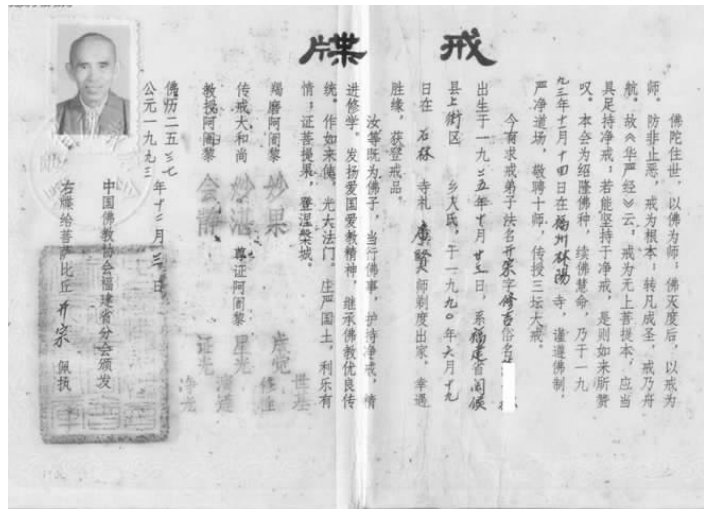 戒牒
佛陀住世，以佛为师；佛灭度后，以戒为
师。防非止恶，戒为根本；转凡成圣，戒乃舟
航。故《华严经》云，戒为无上菩提本，应当
具足持净戒；若能坚持于净戒，是则如来所赞
叹。本会为绍隆佛种，续佛慧命，乃于一九
九三年十一月十四日在福州林阳寺，谨遵佛制，
严净道场，敬聘十师，传授三坛大戒。
今有求戒弟子法名开宗字修吉俗名
出生于一九二五年十月廿三日，系福建省闽侯
县上街区 乡人氏，于一九九〇年六月十九
日在 石林 寺礼 广贤大师剃度出家，幸遇
胜缘，获登戒品。
汝等既为佛子，当行佛事，护持净戒，精
进修学。发扬爱国爱教精神，继承佛教优良传
统。作如来使，光大法门。庄严国土，利乐有
情；证菩提果，登涅槃城。
羯磨阿阇黎 妙果
传戒大和尚 妙湛 尊证阿阇黎
教授阿阇黎 会静
世基
星光
演莲
证光
净光
佛历二五三七
公元一九九三 年十二月三日
中国佛教协会福建省分会颁发
右牒给菩萨比丘 开宗 佩执